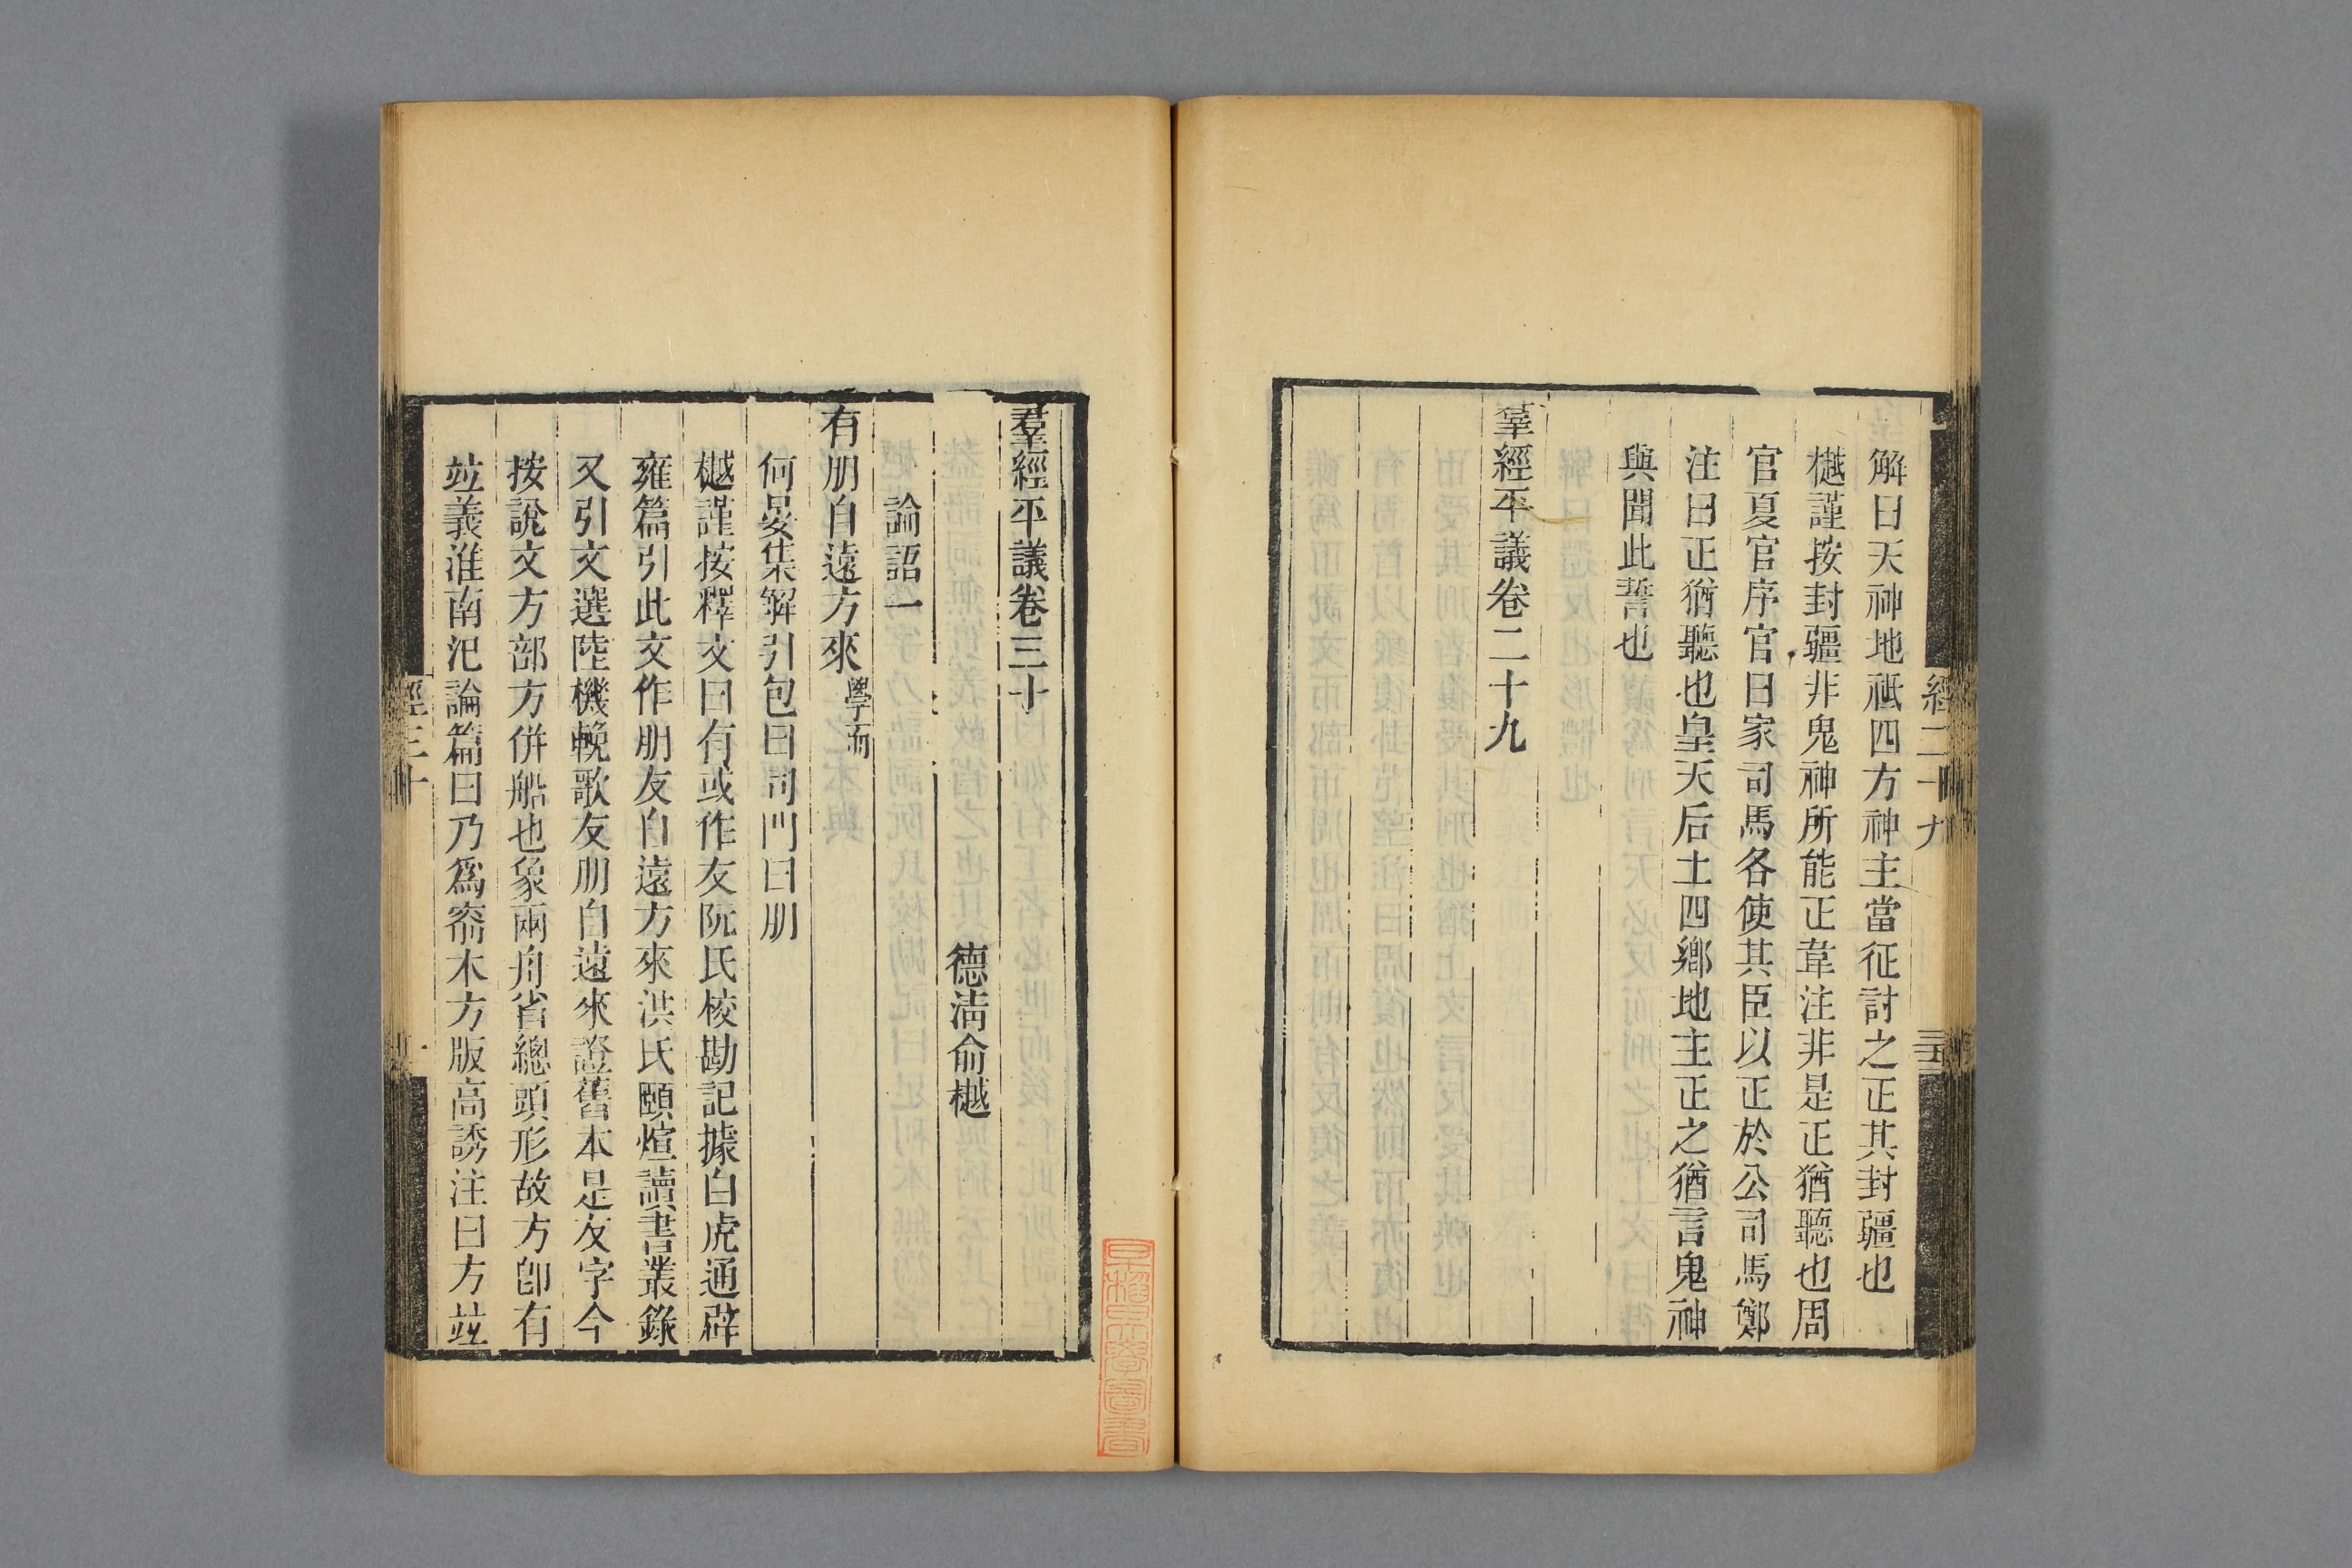 解曰天神地祇四方神主當征討之正其封疆也
樾謹按封疆非鬼神所能正韋注非是正猶聽也周
官夏官序官曰家司馬各使其臣以正於公司馬鄭
注曰正猶聽也皇天后土四鄉地主正之猶言鬼神
與聞此誓也
羣經平議卷二十九
羣經平議卷三十
德清俞樾
論語一
有朋自遠方來學而
何晏集解引包曰同門曰朋
樾謹按釋文曰有或作友阮氏校勘記據白虎通辟
雍篇引此文作朋友自遠方來洪氏頤煊讀書叢錄
又引文選陸機輓歌友朋自遠來證舊本是友字今
按說文方部方併船也象兩舟省總頭形故方卽有
竝義淮南氾論篇曰乃爲窬木方版高誘注曰方竝
經三十
一
早稻田大學圖書